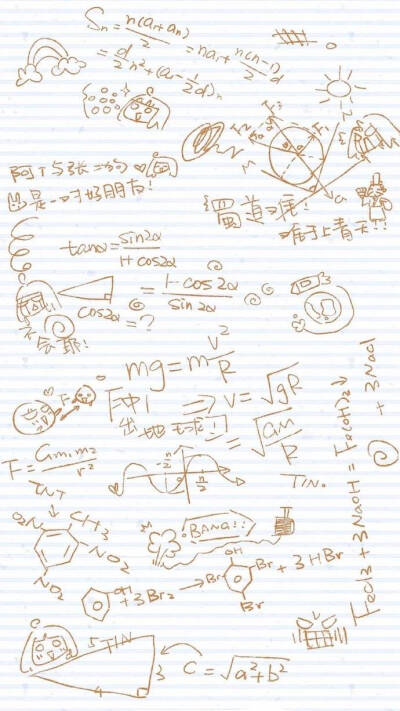 Sn = n(a₁+an)/2 = na₁ + n(n-1)/2 d
= d/2 n² + (a₁ - 1/2 d)n
阿T与张二狗
是一对好朋友!
蜀道难
难于上青天!!
tanα = sin2α/1+cos2α
= 1-cos2α/sin2α
cos2α = ?
不会乖!
mg = m V²/R
F
⇒ V = √gR
冲出地球!
= √GM/R
F = Gm₁m₂/r²
-π/2
π/2
TIN.
TNT
O₂N
CH₃
NO₂
NO₂
BANG!!
OH
+ 3Br₂ →
OH
Br
Br
Br
+ 3HBr
FeCl₃ + 3NaOH = Fe(OH)₃↓ + 3NaCl
5
TIN
3
4
C = √a²+b²